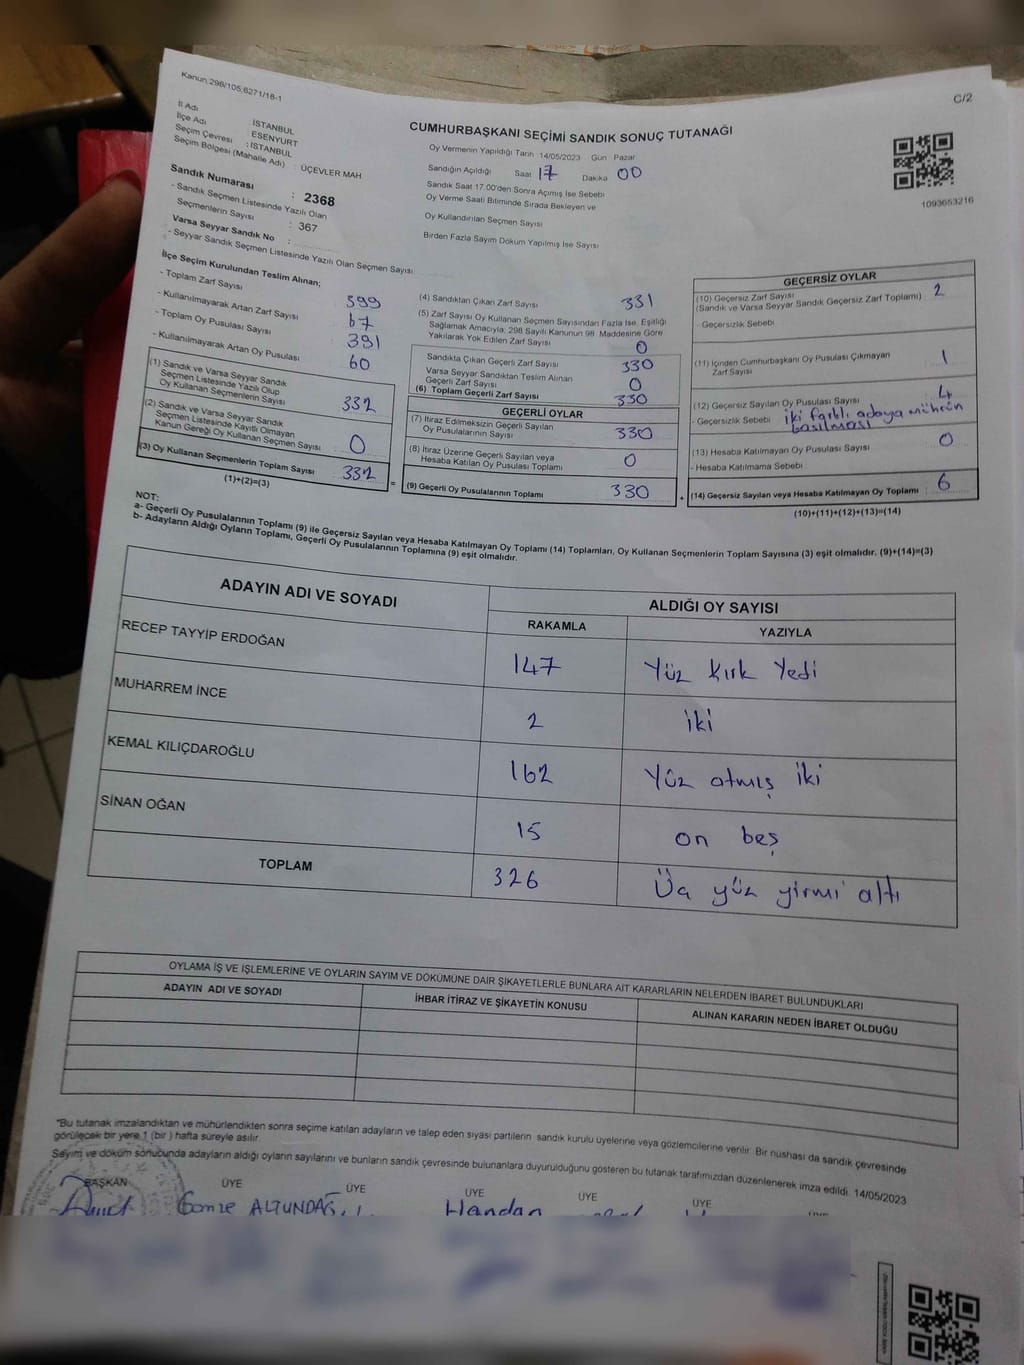 Kanun, 298/105,6271/18-1
C/2
İl Adı İSTANBUL
İlçe Adı : ESENYURT
Seçim Çevresi : İSTANBUL
Seçim Bölgesi (Mahalle Adı) : ÜÇEVLER MAH
Sandık Numarası : 2368
- Sandık Seçmen Listesinde Yazılı Olan
Seçmenlerin Sayısı : 367
Varsa Seyyar Sandık No :
- Seyyar Sandık Seçmen Listesinde Yazılı Olan Seçmen Sayısı
CUMHURBAŞKANI SEÇİMİ SANDIK SONUÇ TUTANAĞI
Oy Vermenin Yapıldığı Tarih 14/05/2023 Gün Pazar
Sandığın Açıldığı Saat 17 Dakika 00
Sandık Saat 17.00'den Sonra Açımış İse Sebebi
Oy Verme Saati Bitiminde Sırada Bekleyen ve
Oy Kullandırılan Seçmen Sayısı
Birden Fazla Sayım Döküm Yapılmış İse Sayısı
1093653216
İlçe Seçim Kurulundan Teslim Alınan;
- Toplam Zarf Sayısı 399
- Kullanılmayarak Artan Zarf Sayısı 67
- Toplam Oy Pusulası Sayısı 391
- Kullanılmayarak Artan Oy Pusulası 60
(1) Sandık ve Varsa Seyyar Sandık
Seçmen Listesinde Yazılı Olup
Oy Kullanan Seçmenlerin Sayısı 332
(2) Sandık ve Varsa Seyyar Sandık
Seçmen Listesinde Kayıtlı Olmayan
Kanun Gereği Oy Kullanan Seçmen Sayısı 0
(3) Oy Kullanan Seçmenlerin Toplam Sayısı 332
(1)+(2)=(3)
=
(4) Sandıktan Çıkan Zarf Sayısı 331
(5) Zarf Sayısı Oy Kullanan Seçmen Sayısından Fazla İse, Eşitliği
Sağlamak Amacıyla; 298 Sayılı Kanunun 98. Maddesine Göre
Yakılarak Yok Edilen Zarf Sayısı 0
Sandıkta Çıkan Geçerli Zarf Sayısı 330
Varsa Seyyar Sandıktan Teslim Alınan
Geçerli Zarf Sayısı 0
(6) Toplam Geçerli Zarf Sayısı 330
GEÇERLİ OYLAR
(7) İtiraz Edilmeksizin Geçerli Sayılan
Oy Pusulalarının Sayısı 330
(8) İtiraz Üzerine Geçerli Sayılan veya
Hesaba Katılan Oy Pusulası Toplamı 0
(9) Geçerli Oy Pusulalarının Toplamı 330
+
GEÇERSİZ OYLAR
(10) Geçersiz Zarf Sayısı 2
(Sandık ve Varsa Seyyar Sandık Geçersiz Zarf Toplamı)
- Geçersizlik Sebebi
(11) İçinden Cumhurbaşkanı Oy Pusulası Çıkmayan
Zarf Sayısı 1
(12) Geçersiz Sayılan Oy Pusulası Sayısı 4
- Geçersizlik Sebebi iki farklı adaya mührün
basılması
(13) Hesaba Katılmayan Oy Pusulası Sayısı 0
- Hesaba Katılmama Sebebi
(14) Geçersiz Sayılan veya Hesaba Katılmayan Oy Toplamı 6
(10)+(11)+(12)+(13)=(14)
NOT:
a- Geçerli Oy Pusulalarının Toplamı (9) ile Geçersiz Sayılan veya Hesaba Katılmayan Oy Toplamı (14) Toplamları, Oy Kullanan Seçmenlerin Toplam Sayısına (3) eşit olmalıdır. (9)+(14)=(3)
b- Adayların Aldığı Oyların Toplamı, Geçerli Oy Pusulalarının Toplamına (9) eşit olmalıdır.
ADAYIN ADI VE SOYADI ALDIĞI OY SAYISI
RAKAMLA YAZIYLA
RECEP TAYYİP ERDOĞAN 147 Yüz kırk yedi
MUHARREM İNCE 2 iki
KEMAL KILIÇDAROĞLU 162 Yüz atmış iki
SİNAN OĞAN 15 on beş
TOPLAM 326 Üç yüz yirmi altı
OYLAMA İŞ VE İŞLEMLERİNE VE OYLARIN SAYIM VE DÖKÜMÜNE DAİR ŞİKAYETLERLE BUNLARA AİT KARARLARIN NELERDEN İBARET BULUNDUKLARI
ADAYIN ADI VE SOYADI İHBAR İTİRAZ VE ŞİKAYETİN KONUSU ALINAN KARARIN NEDEN İBARET OLDUĞU
*Bu tutanak imzalandıktan ve mühürlendikten sonra seçime katılan adayların ve talep eden siyasi partilerin sandık kurulu üyelerine veya gözlemcilerine verilir. Bir nüshası da sandık çevresinde
görülecek bir yere 1 (bir) hafta süreyle asılır.
Sayım ve döküm sonucunda adayların aldığı oyların sayılarını ve bunların sandık çevresinde bulunanlara duyurulduğunu gösteren bu tutanak tarafımızdan düzenlenerek imza edildi. 14/05/2023
BAŞKAN ÜYE ÜYE ÜYE ÜYE ÜYE
ALTUNDAĞ Handan